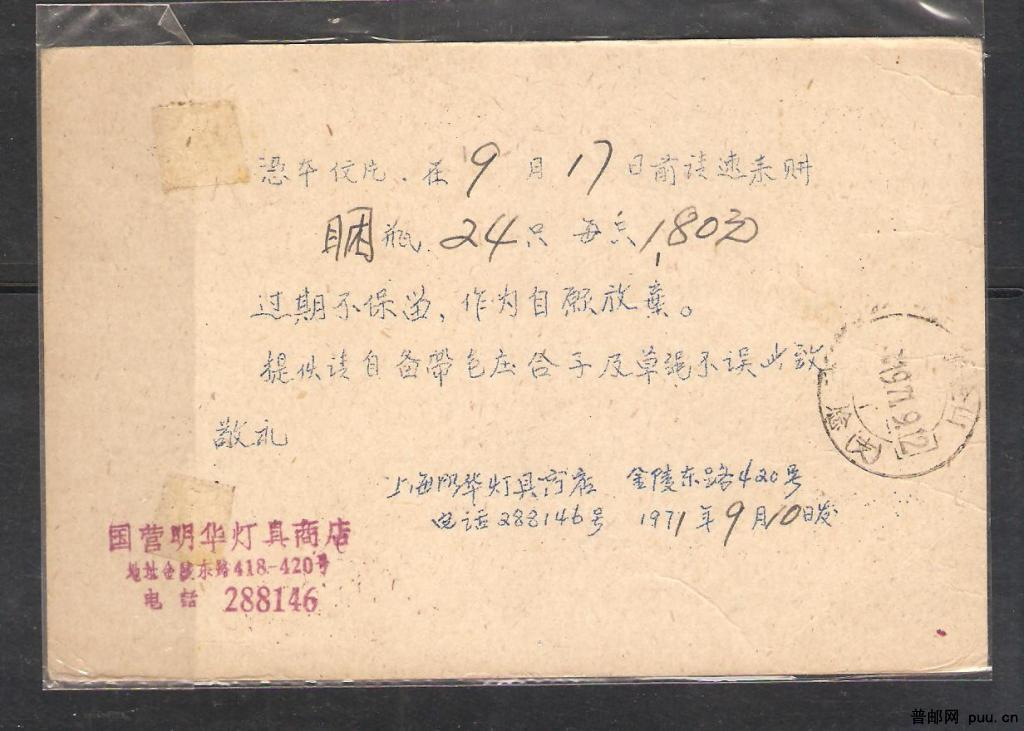 憑本信片.在9月17日前请速来购
胆瓶 24只 每只1.80元
过期不保留,作为自愿放弃。
提供请自备带包庄合子及草绳不误此致
敬礼
上海明华灯具商店 金陵东路420号
电话288146号 1971年9月10日发
国营明华灯具商店
地址金陵东路418-420号
电话 288146
1971.9.12
普邮网 puu.cn